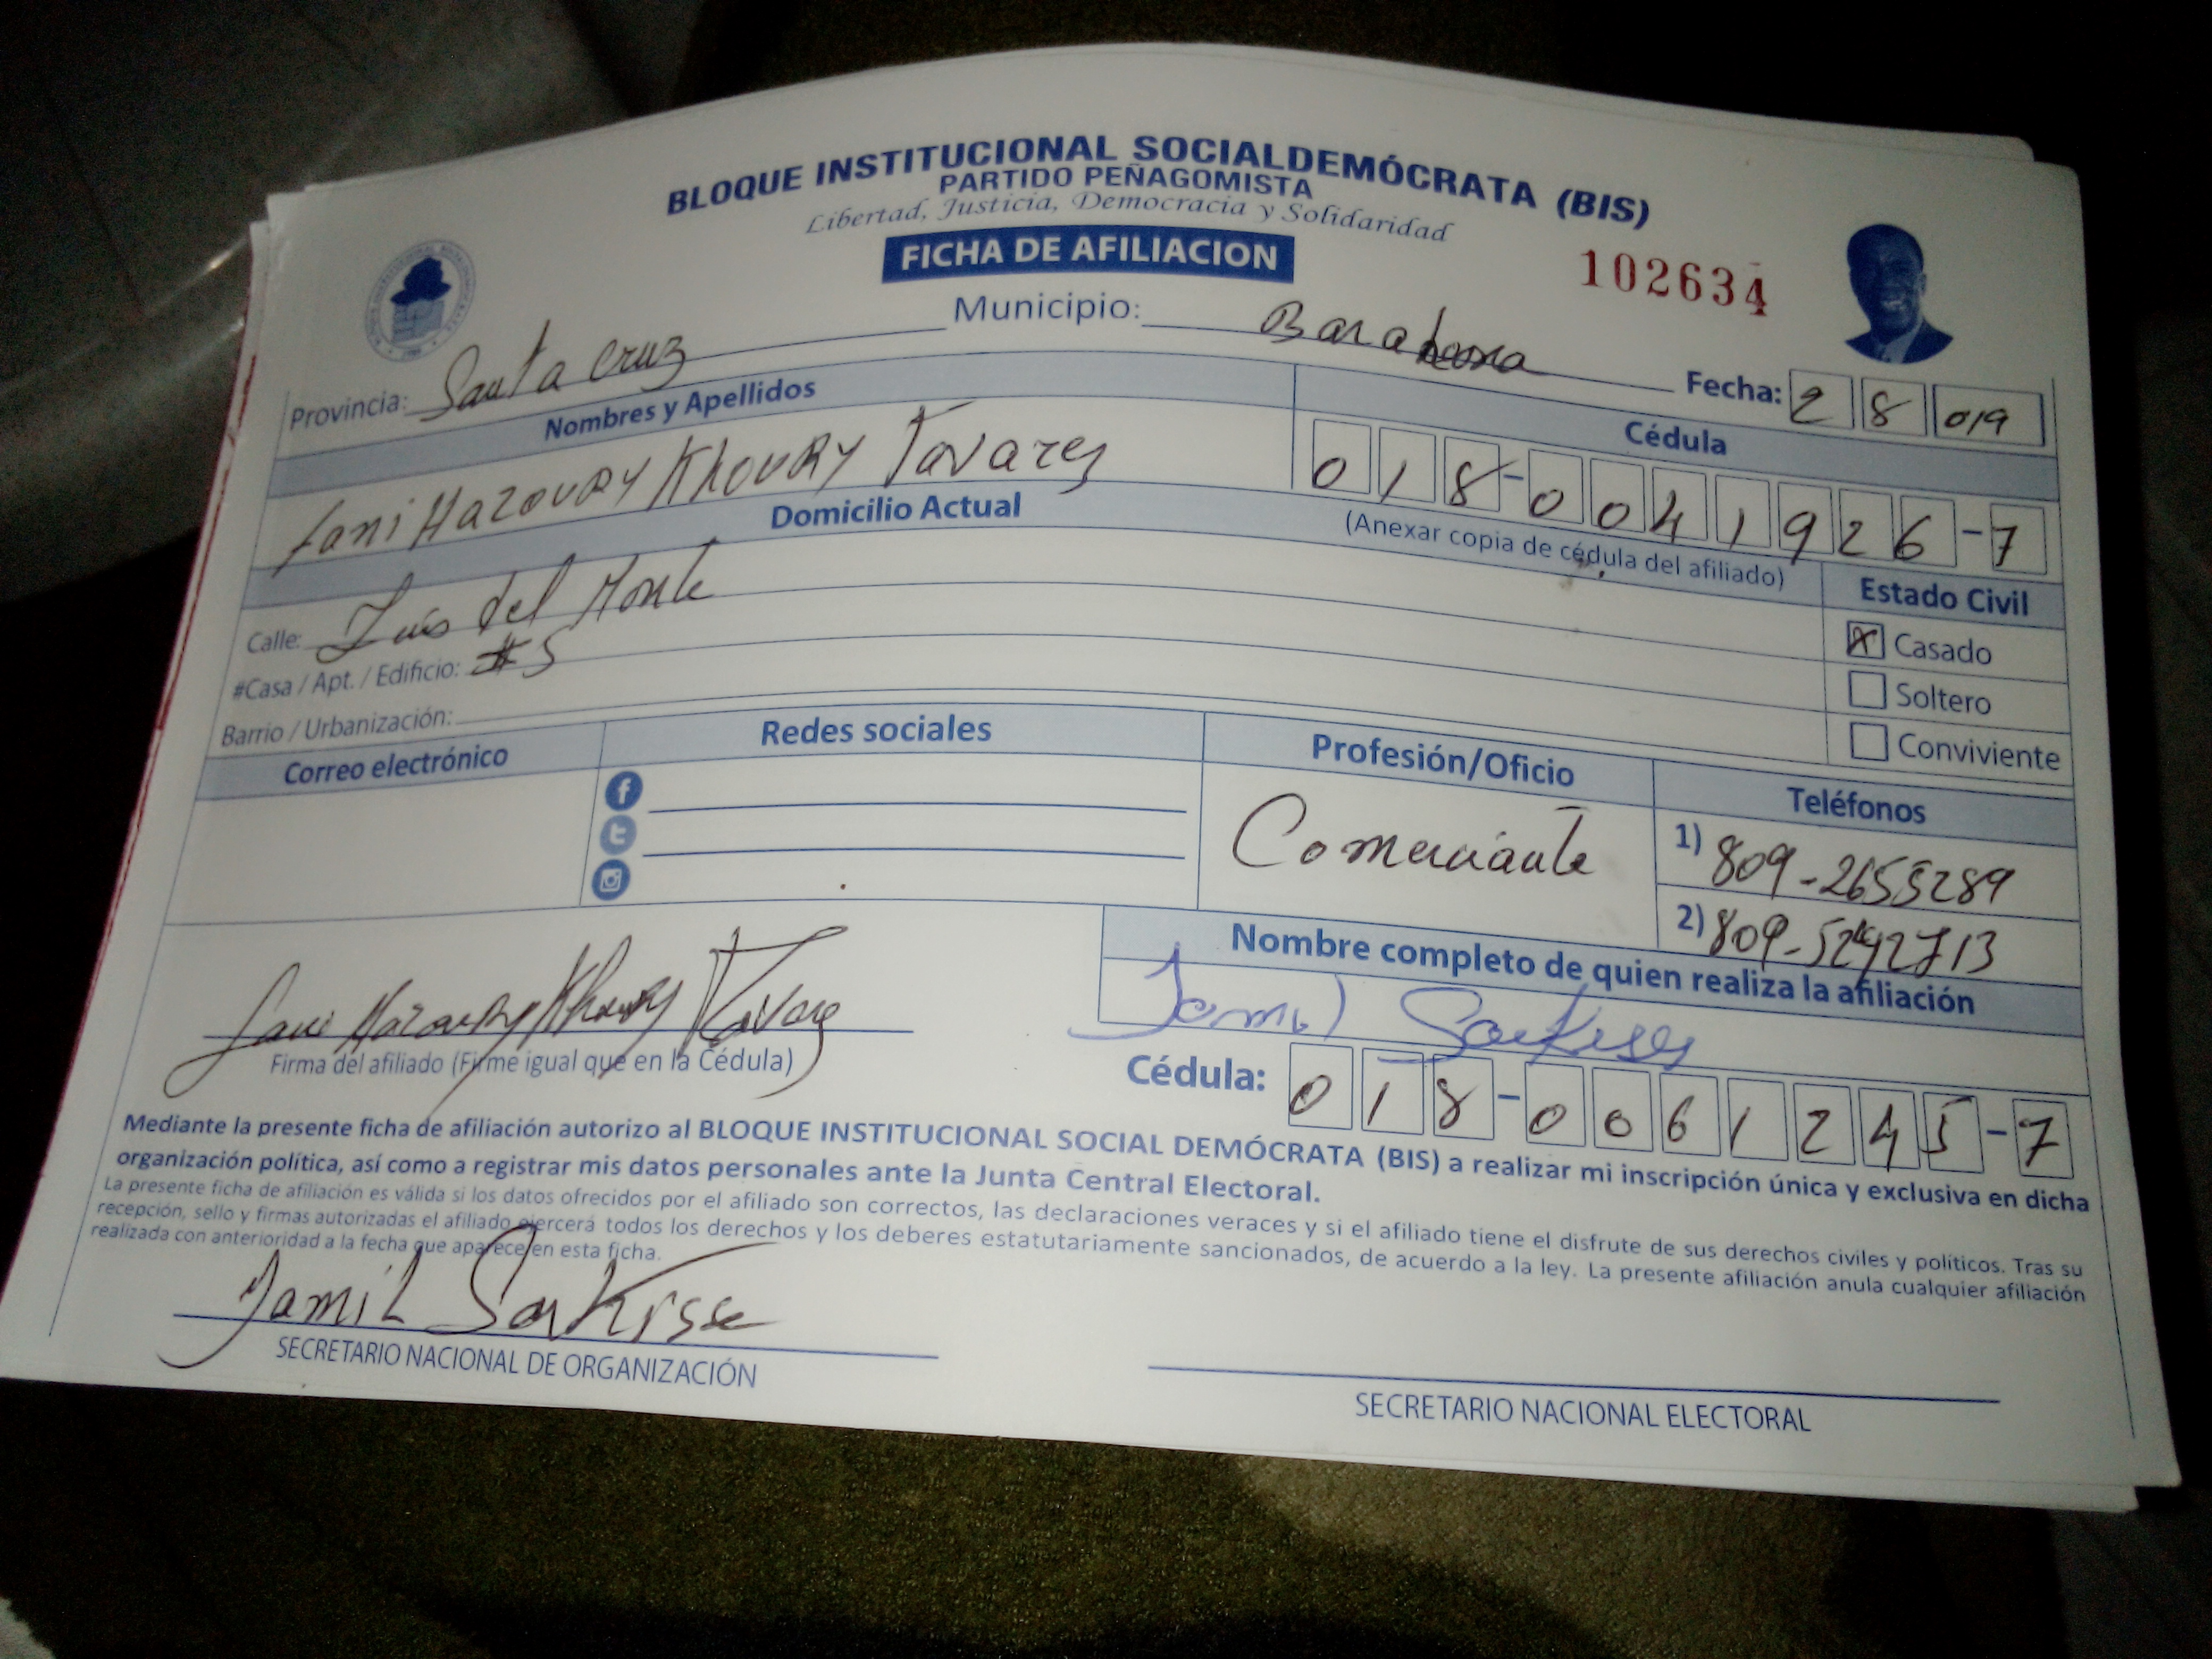 BLOQUE INSTITUCIONAL SOCIALDEMÓCRATA (BIS)
PARTIDO PEÑAGOMISTA
Libertad, Justicia, Democracia y Solidaridad
FICHA DE AFILIACION
102634
Provincia: Santa Cruz Municipio: Fecha: 2 8 019
Nombres y Apellidos Cédula
Jani Hazoury Khoury Tavares 018-0041926-7
(Anexar copia de cédula del afiliado)
Domicilio Actual Estado Civil
Calle: Luis del Monte X Casado
#Casa / Apt. / Edificio: #5 Soltero
Barrio / Urbanización: Conviviente
Correo electrónico Redes sociales Profesión/Oficio Teléfonos
Comerciante 1) 809-2655289
2) 809-
Nombre completo de quien realiza la afiliación
Jani Hazoury Khoury Tavares Jamil
Firma del afiliado (Firme igual que en la Cédula) Cédula: 018-0061245-7
Mediante la presente ficha de afiliación autorizo al BLOQUE INSTITUCIONAL SOCIAL DEMÓCRATA (BIS) a realizar mi inscripción única y exclusiva en dicha
organización política, así como a registrar mis datos personales ante la Junta Central Electoral.
La presente ficha de afiliación es válida si los datos ofrecidos por el afiliado son correctos, las declaraciones veraces y si el afiliado tiene el disfrute de sus derechos civiles y políticos. Tras su
recepción, sello y firmas autorizadas el afiliado ejercerá todos los derechos y los deberes estatutariamente sancionados, de acuerdo a la ley. La presente afiliación anula cualquier afiliación
realizada con anterioridad a la fecha que aparece en esta ficha.
Jamil Sarkisse
SECRETARIO NACIONAL DE ORGANIZACIÓN SECRETARIO NACIONAL ELECTORAL